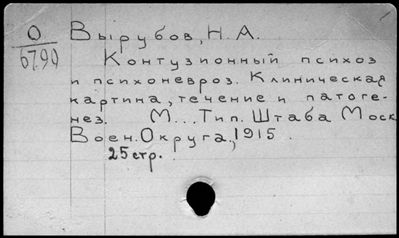 О Вырубов, Н.А.
6790 Контузионный психоз
и психоневроз. Клиническая
картина, течение и патоге-
нез. М... Тип. Штаба Моск
Воен. Округа, 1915.
25 стр.